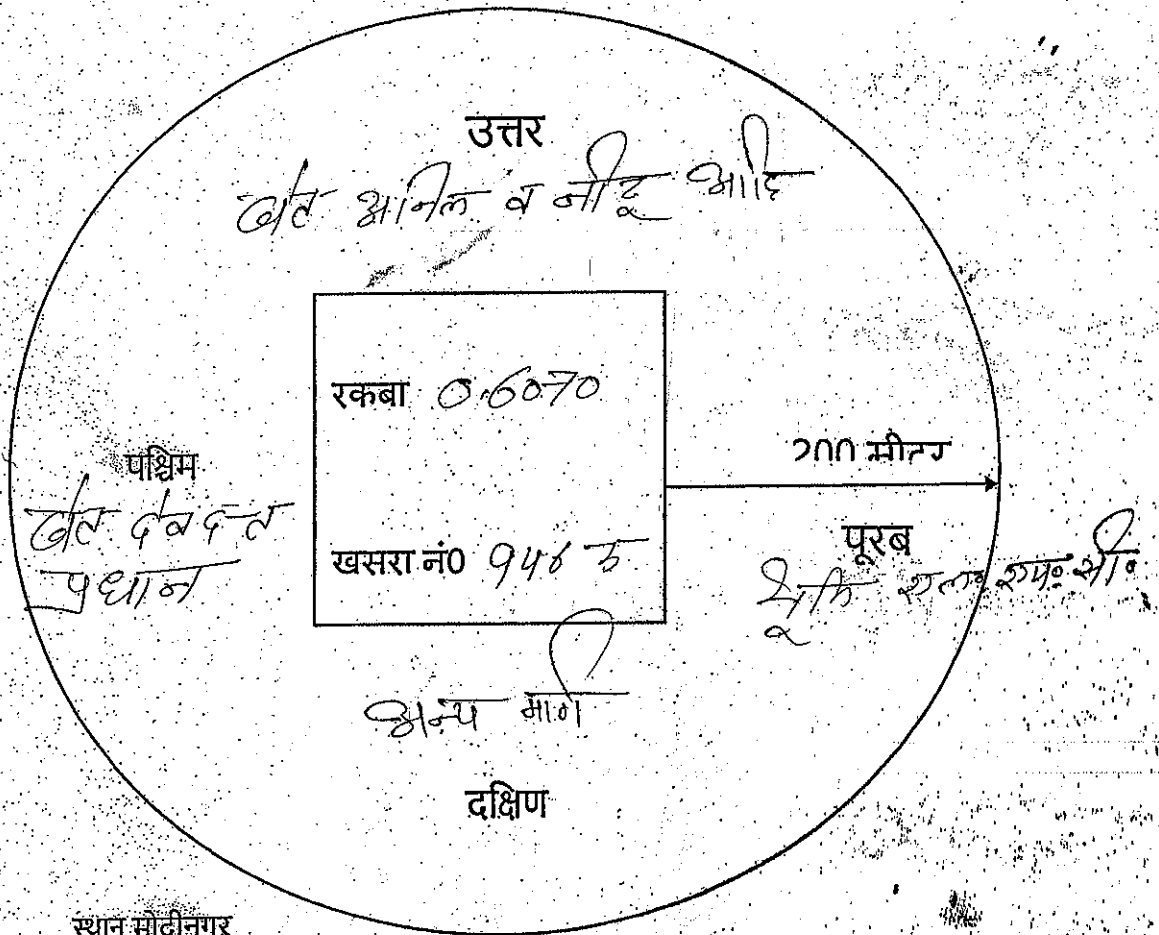 उत्तर
खेत अनिल व नीटू आदि
रकबा 0.6070
200 मीटर
पश्चिम
खेत देवदत्त
प्रधान
खसरा नं0
पूरब
भूमि एल० एम० सी०
अन्य मार्ग
दक्षिण
स्थान मोदीनगर